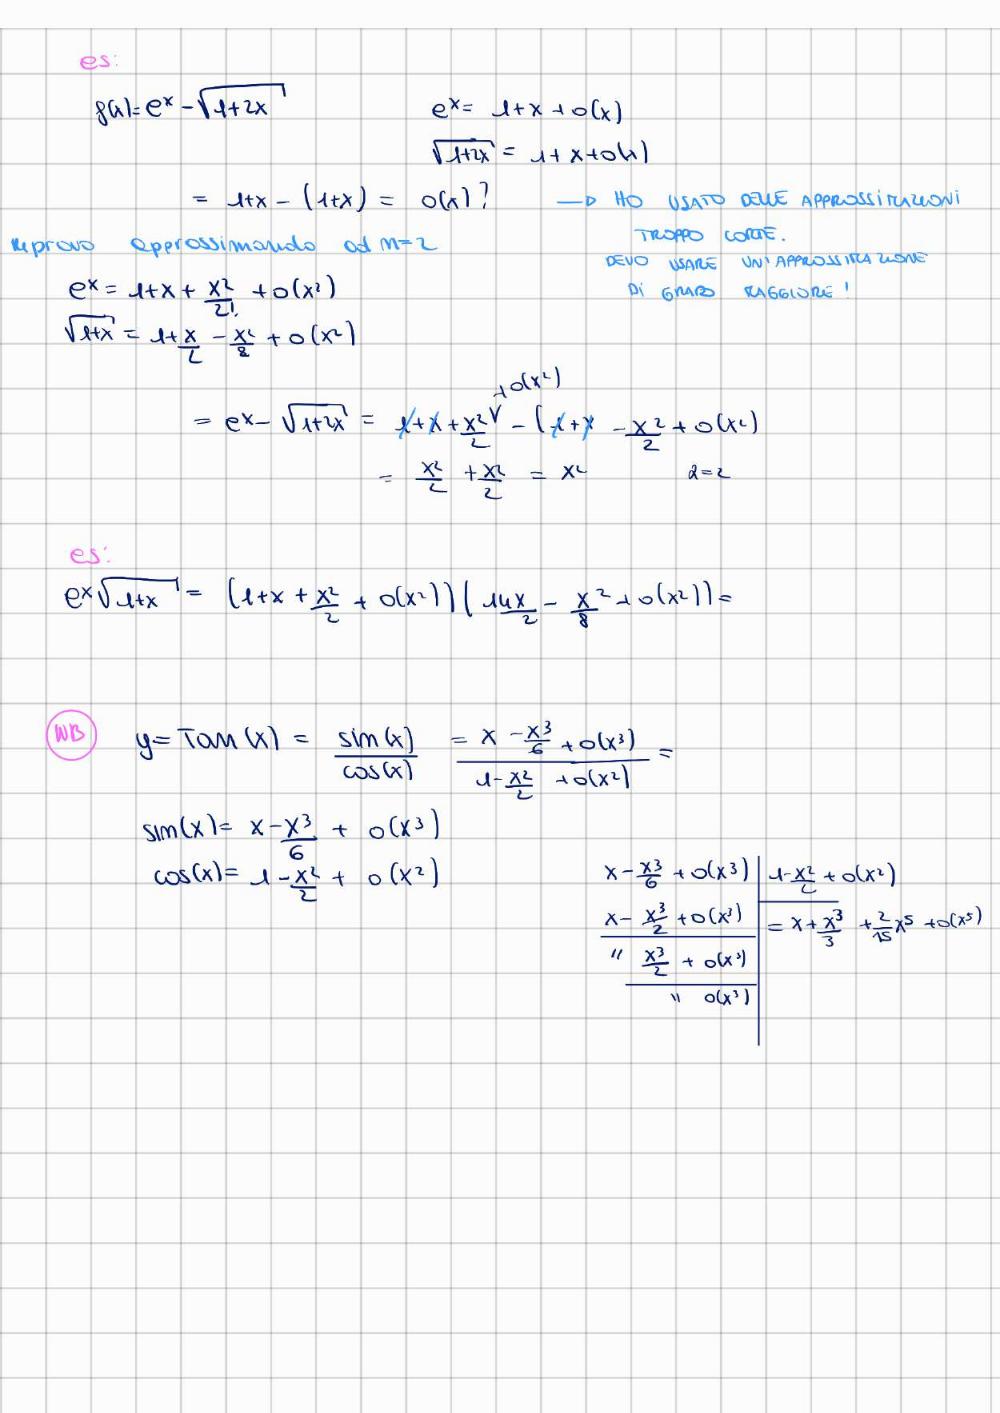 es:
f(x)=e^x - √(1+2x)
e^x = 1+x+o(x)
√(1+2x) = 1+x+o(x)
= 1+x - (1+x) = o(x)?
→ HO USATO DELLE APPROSSIMAZIONI
TROPPO CORTE.
DEVO USARE UN'APPROSSIMAZIONE
DI GRADO MAGGIORE!
riprovo approssimando ad n=2
e^x = 1+x+x²/2! + o(x²)
√(1+x) = 1+x/2 - x²/8 + o(x²)
+o(x²)
= e^x - √(1+2x) = 1+x+x²/2 - (1+x - x²/2 + o(x²)
= x²/2 + x²/2 = x² α=2
es:
e^x √(1+x) = (1+x+x²/2 + o(x²))(1+x/2 - x²/8 + o(x²)) =
NB
y=Tan(x) = sin(x)/cos(x) = (x - x³/6 + o(x³))/(1-x²/2 + o(x²)) =
sin(x)= x - x³/6 + o(x³)
cos(x)= 1 - x²/2 + o(x²)
x - x³/6 + o(x³) | 1-x²/2 + o(x²)
x - x³/2 + o(x³) | = x + x³/3 + 2/15 x⁵ + o(x⁵)
" x³/2 + o(x³)
" o(x³)